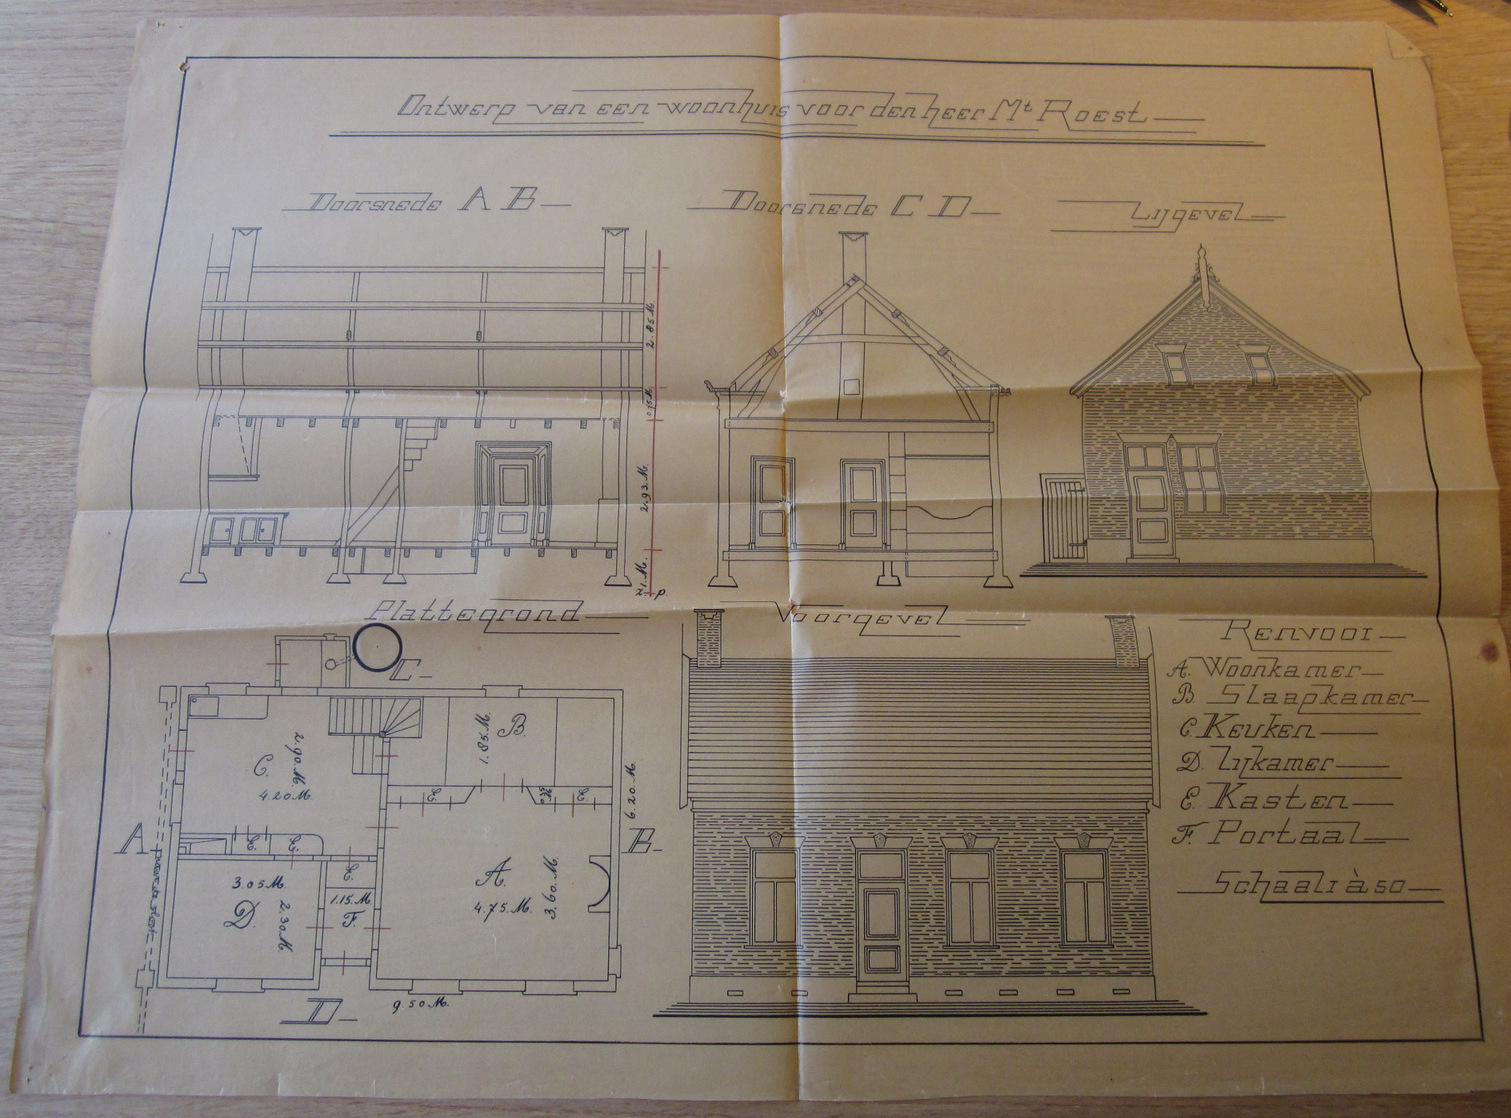 Ontwerp van een woonhuis voor den heer Mt Roest
Doorsnede A B
Doorsnede C D
Zijgevel
2.85 M.
0.75 M.
2.93 M.
1 M.
p.
Plattegrond
Voorgevel
Renvooi
A. Woonkamer
B Slaapkamer
C. Keuken
D. Zijkamer
E. Kasten
F. Portaal
Schaal 1 à 50
C
B.
1.85 M.
C.
2.90 M.
4.20 M.
6.20 M.
A
B
A.
4.75 M.
3.60 M.
3.05 M.
D.
2.30 M.
1.15 M
F.
D
9.50 M.